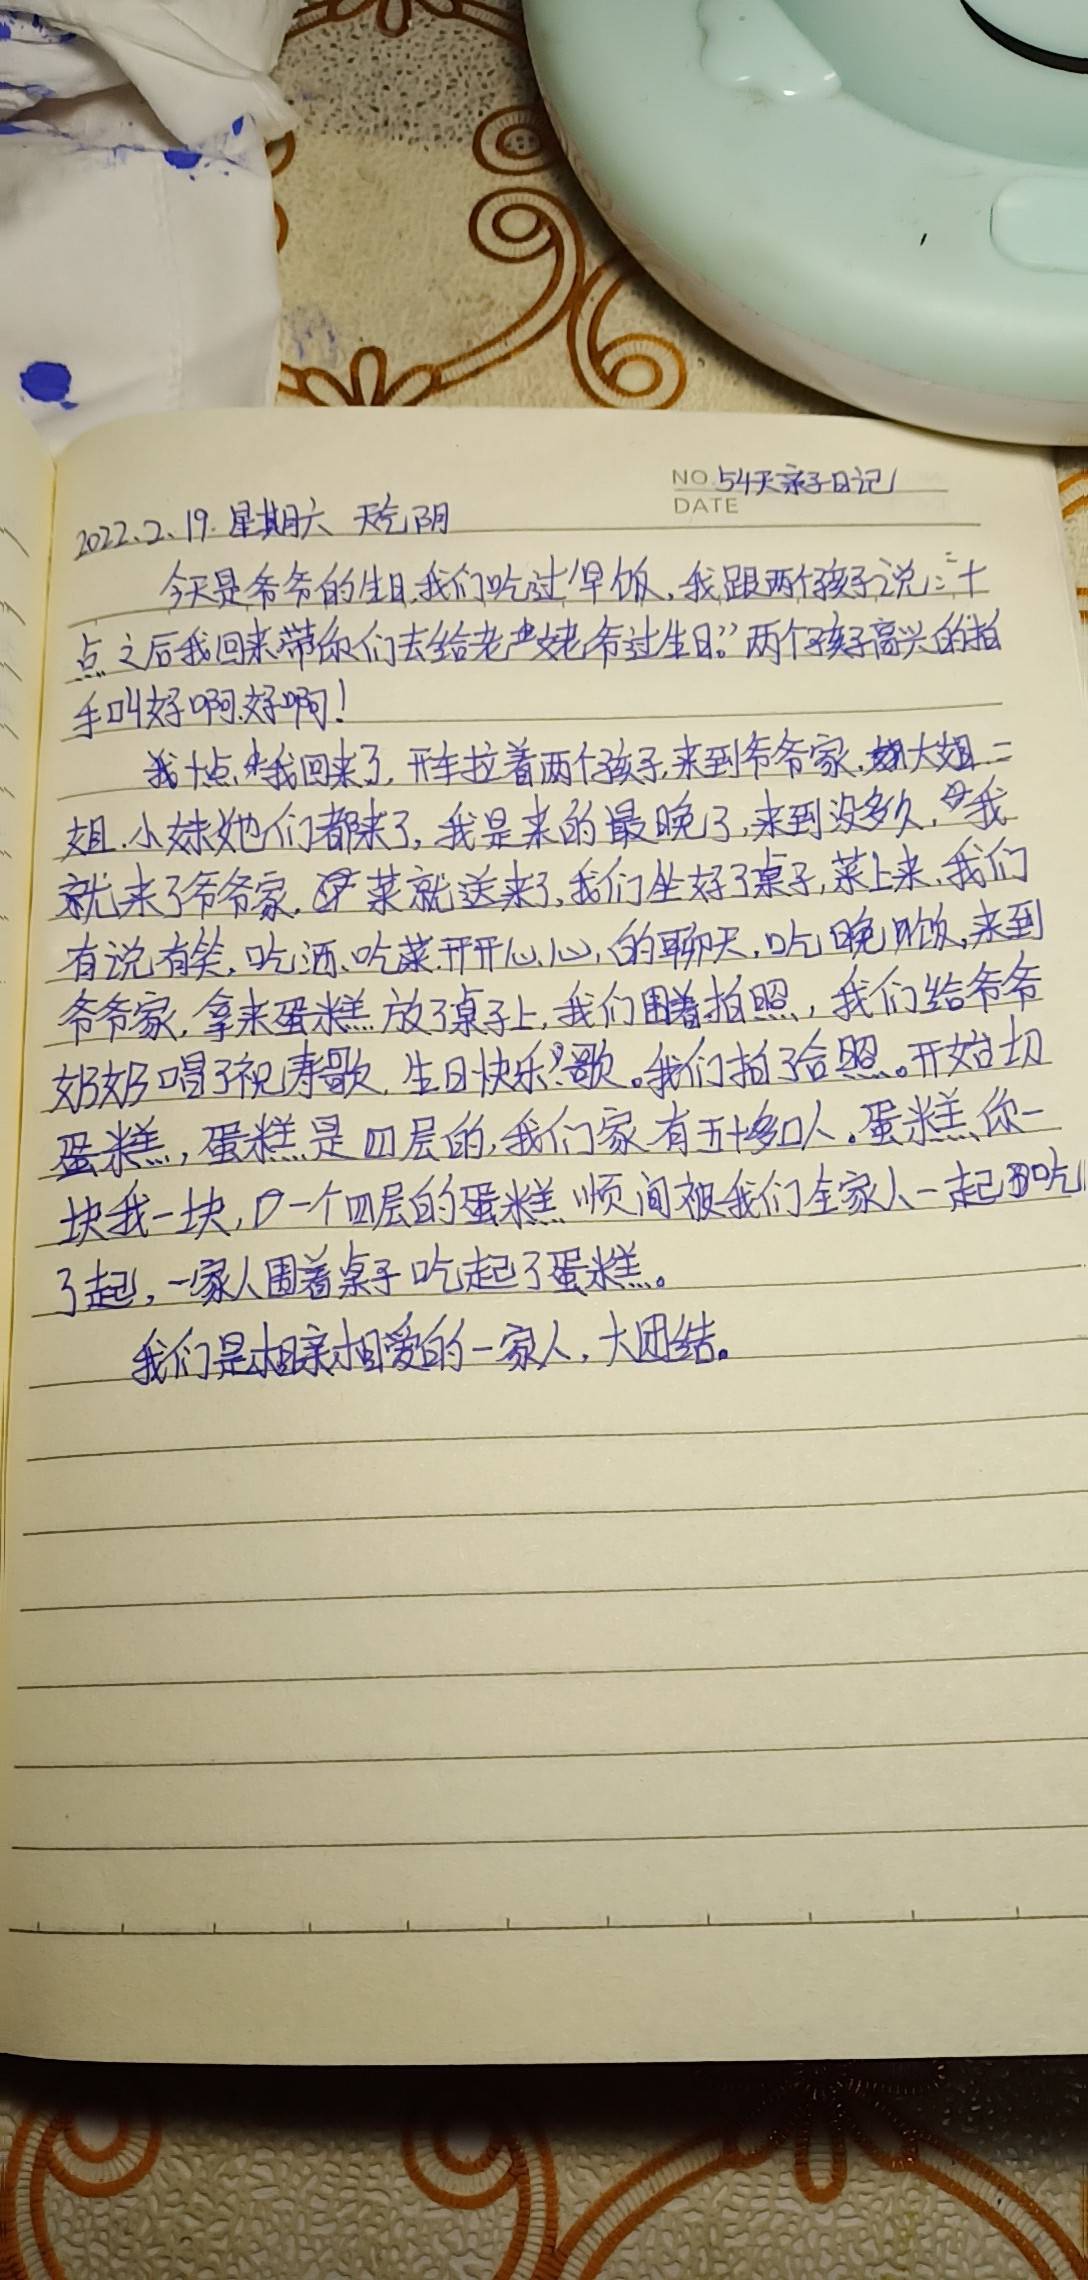 NO. 54天亲子日记
DATE
2022.2.19.星期六 天气阴
今天是爷爷的生日,我们吃过早饭,我跟两个孩子说:“十
点之后我回来带你们去给老姥爷过生日。”两个孩子高兴的拍
手叫好啊,好啊!
我十点,我回来了,开车拉着两个孩子,来到爷爷家,大姐.二
姐.小妹她们都来了,我是来的最晚了,来到没多久,我
就来了爷爷家,菜就送来了,我们坐好了桌子,菜上来,我们
有说有笑,吃酒、吃菜.开开心心的聊天,吃晚饭,来到
爷爷家,拿来蛋糕放了桌子上,我们围着拍照,我们给爷爷
奶奶唱了祝寿歌,生日快乐歌。我们拍了合照。开始切
蛋糕,蛋糕是四层的,我们家有五十多口人。蛋糕你一
块我一块,一个四层的蛋糕顷间被我们全家人一起吃
了起,一家人围着桌子吃起了蛋糕。
我们是相亲相爱的一家人,大团结。